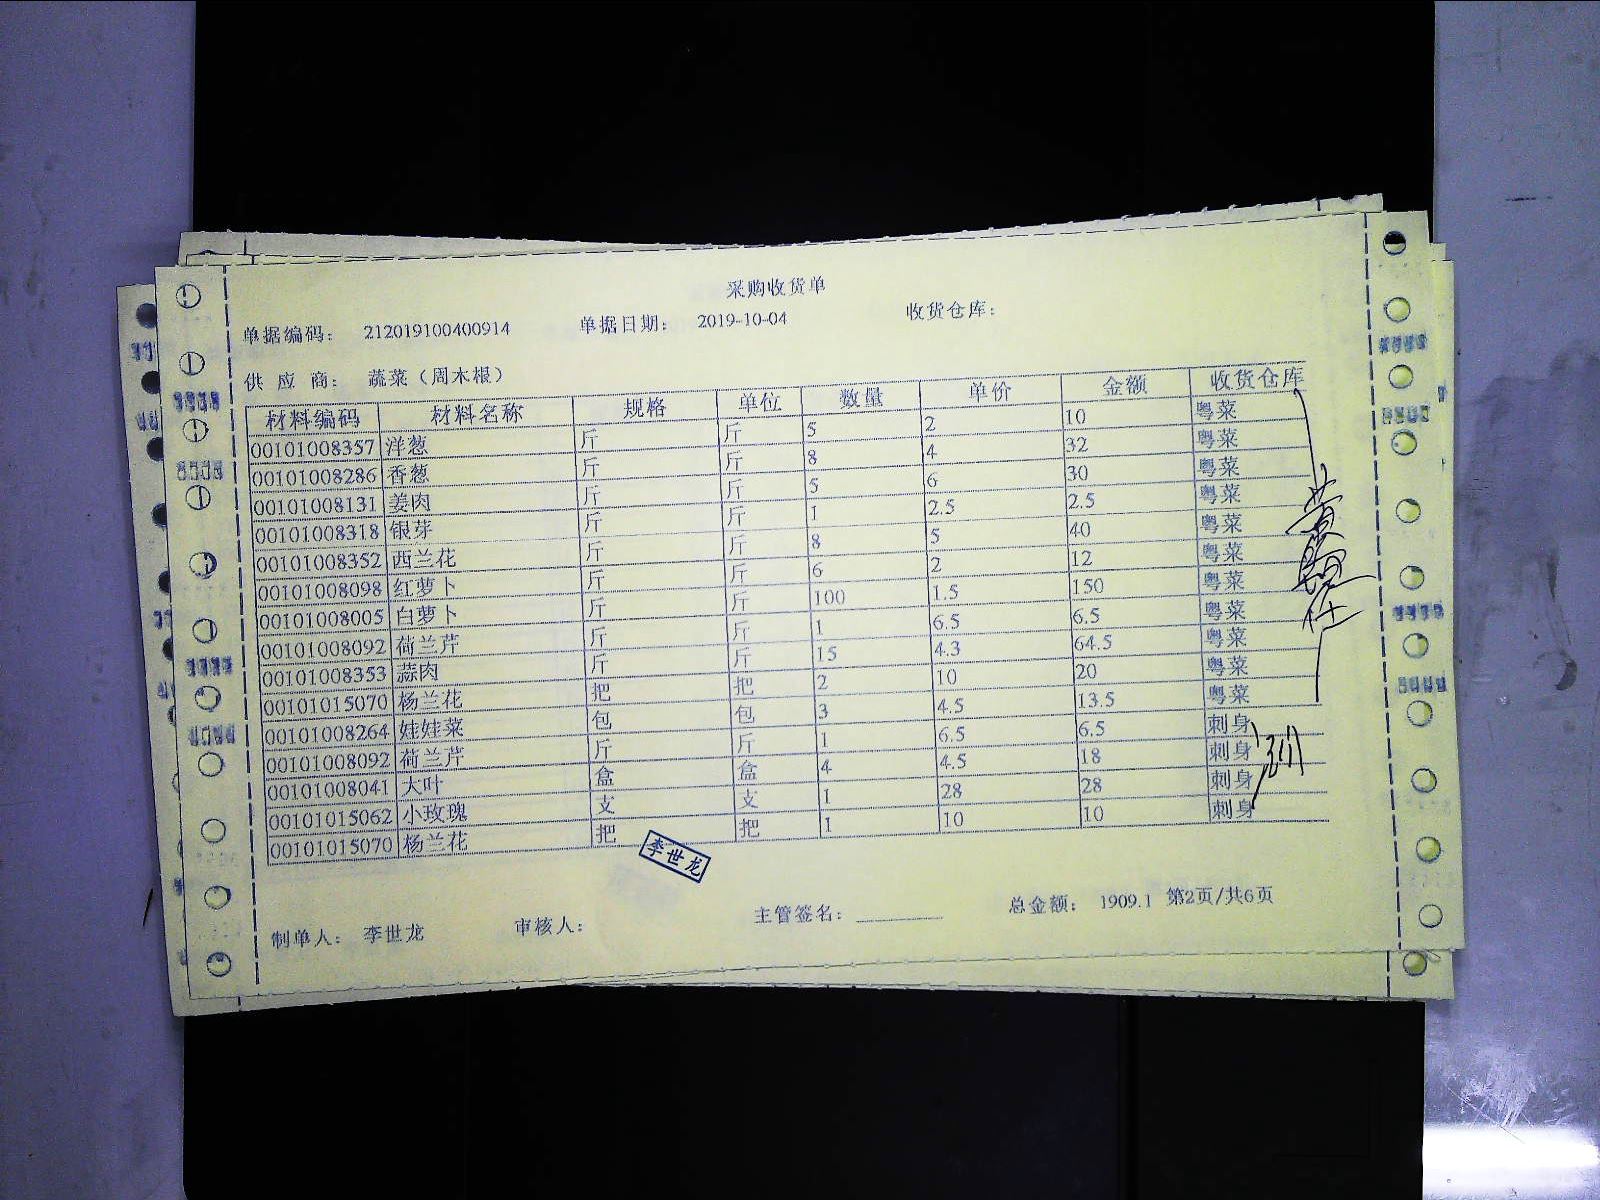 采购收货单
单据编码： 212019100400914 单据日期： 2019-10-04 收货仓库：
供 应 商： 蔬菜（周木根）
材料编码 材料名称 规格 单位 数量 单价 金额 收货仓库
00101008357 洋葱 斤 斤 5 2 10 粤菜
00101008286 香葱 斤 斤 8 4 32 粤菜
00101008131 姜肉 斤 斤 5 6 30 粤菜
00101008318 银芽 斤 斤 1 2.5 2.5 粤菜
00101008352 西兰花 斤 斤 8 5 40 粤菜
00101008098 红萝卜 斤 斤 6 2 12 粤菜
00101008005 白萝卜 斤 斤 100 1.5 150 粤菜
00101008092 荷兰芹 斤 斤 1 6.5 6.5 粤菜
00101008353 蒜肉 斤 斤 15 4.3 64.5 粤菜
00101015070 杨兰花 把 把 2 10 20 粤菜
00101008264 娃娃菜 包 包 3 4.5 13.5 粤菜
00101008092 荷兰芹 斤 斤 1 6.5 6.5 刺身
00101008041 大叶 盒 盒 4 4.5 18 刺身
00101015062 小玫瑰 支 支 1 28 28 刺身
00101015070 杨兰花 把 把 1 10 10 刺身
李世龙
制单人： 李世龙 审核人： 主管签名： 总金额： 1909.1 第2页/共6页